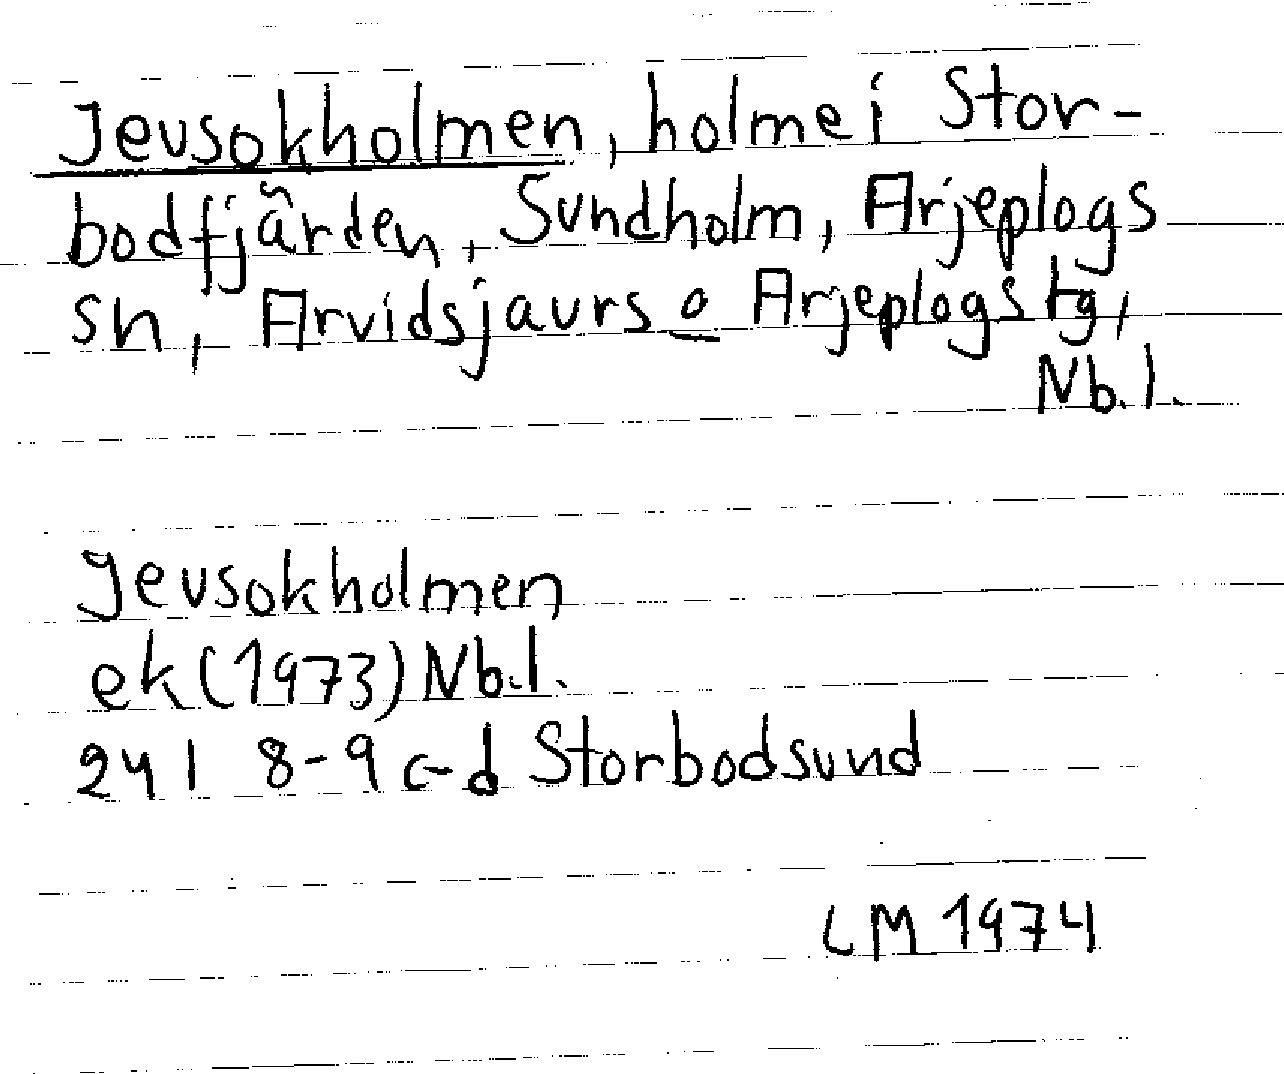 Jevsokholmen, holme i Stor-
bodfjärden, Sundholm, Arjeplogs
sn, Arvidsjaurs o Arjeplogs tg,
Nb.l.
Jevsokholmen
ek (1973) Nb.l.
24 I 8-9 c-d Storbodsund
LM 1974